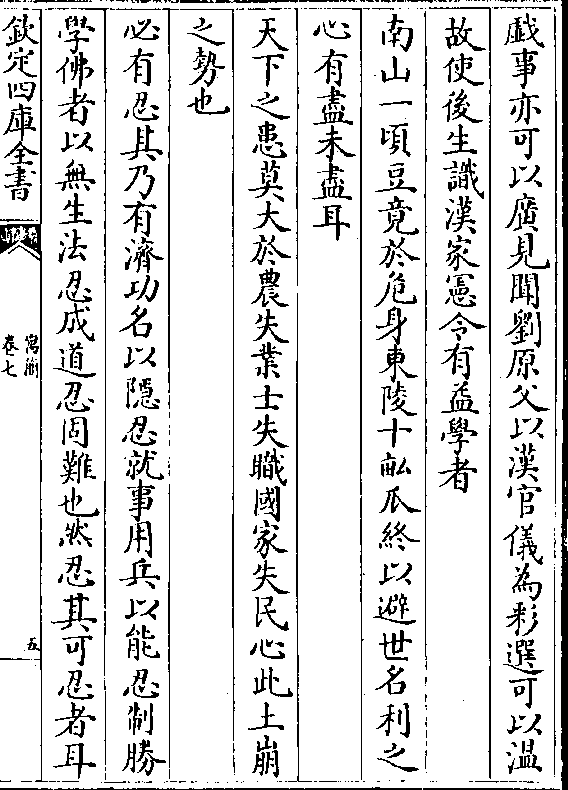 戲事亦可以廣見聞劉原父以漢官儀為彩選可以温
故使後生識漢家憲令有益學者
南山一頃豆竟於危身東陵十畝瓜終以避世名利之
心有盡未盡耳
天下之患莫大於農失業士失職國家失民心此土崩
之勢也
必有忍其乃有濟功名以隱忍就事用兵以能忍制勝
學佛者以無生法忍成道忍固難也然忍其可忍者耳
欽定四庫全書
寓簡
卷七
五